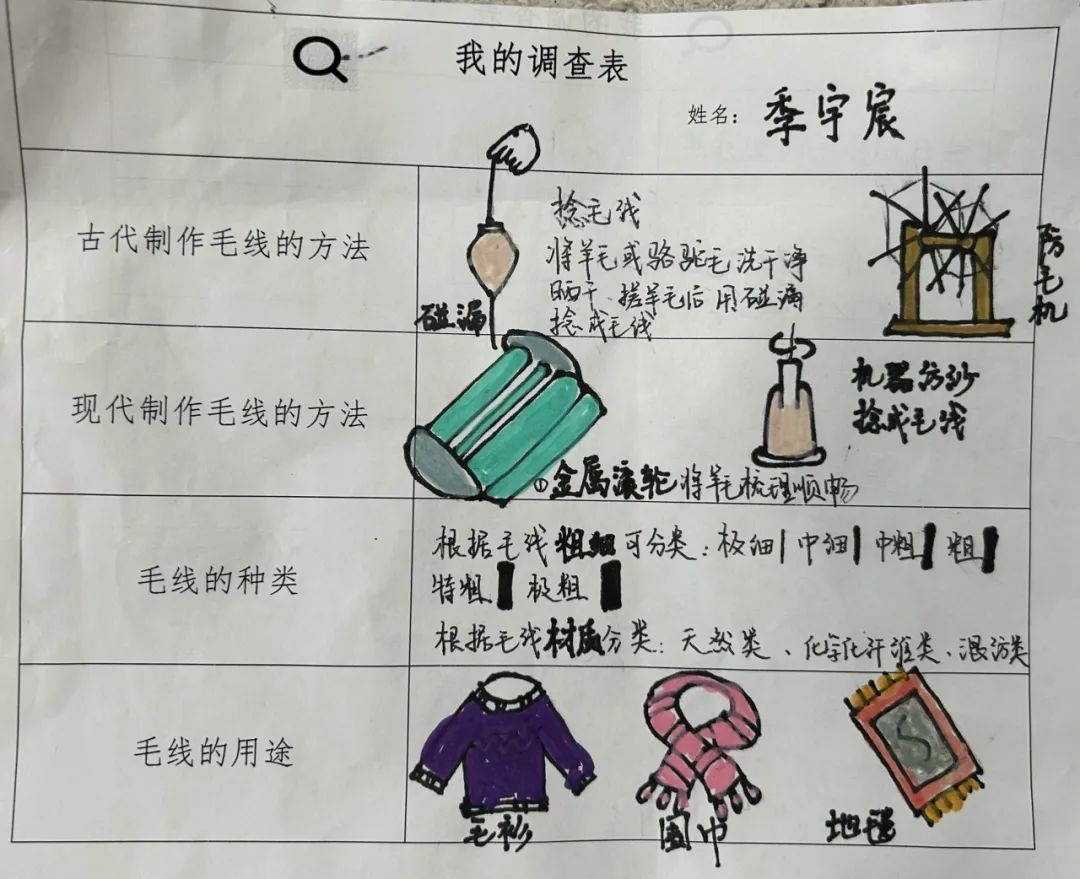 我的调查表
姓名：季宇宸
古代制作毛线的方法
捻毛线
将羊毛或骆驼毛洗干净
晒干、搓羊毛后用碰漏
捻成毛线
碰漏
防毛机
现代制作毛线的方法
机器纺纱
捻成毛线
①金属滚轮将羊毛梳理顺畅
毛线的种类
根据毛线粗细可分类：极细 中细 中粗 粗
特粗 极粗
根据毛线材质分类：天然类、化学化纤维类、混纺类
毛线的用途
毛衫
围巾
地毯